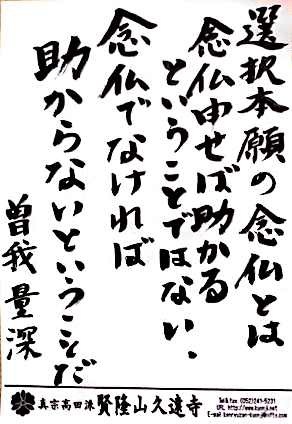 選択本願の念仏とは
念仏申せば助かる
ということではない、
念仏でなければ
助からないということだ
曽我量深
真宗高田派 賢隆山久遠寺
Tel & Fax (052)241-5231